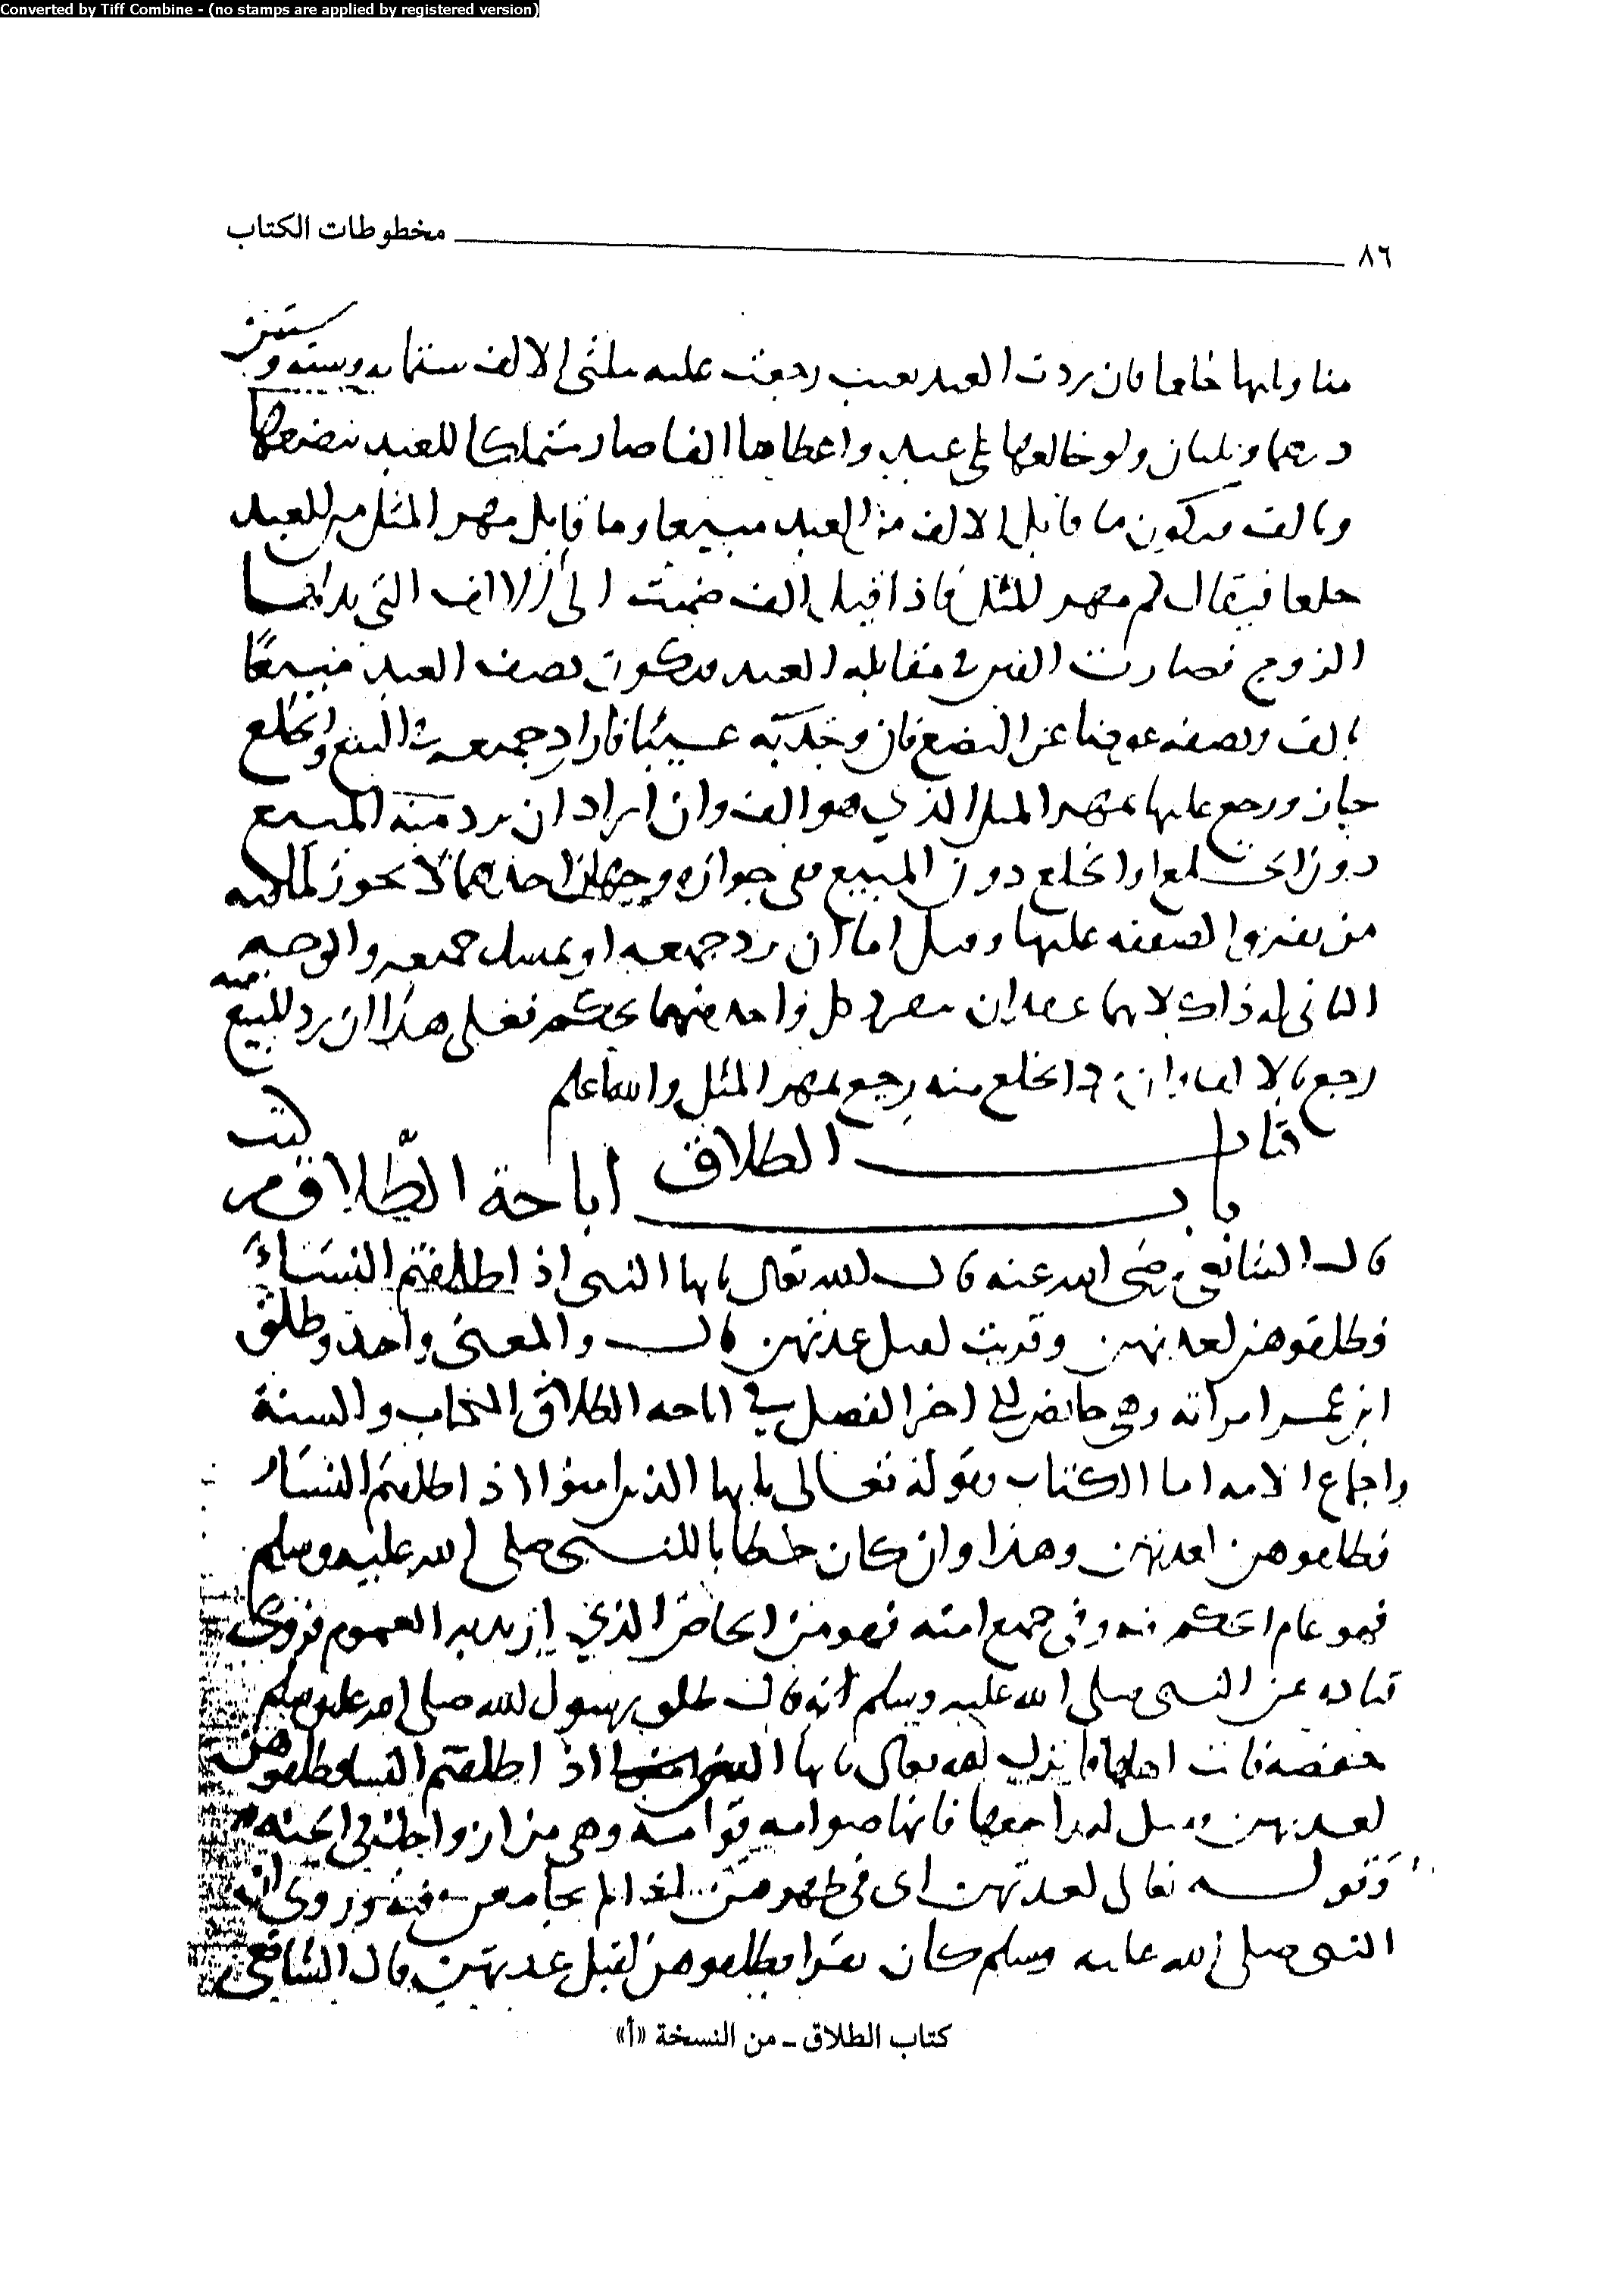 Converted by Tiff Combine - (no stamps are applied by registered version)
٨٦ مخطوطات الكتاب
فان ردت العبد بعيب رجعت عليه بثلثي الالف ستمايه وستة وستين
درهما وثلثان ولو خالعها على عبد واعطاها الفا صار للعبد ببضعها
وبالف فيكون ما قابل الالف من العبد مبيعا وما قابل مهر المثل من العبد
خلعا فيقال كم مهر المثل فاذا قيل الف ضمت الى الالف التي بذلها
الزوج فصارت الفين في مقابله العبد فيكون نصف العبد مبيعا
بالف ونصفه عوضا عن البضع فان وجد به عيبا فاراد جميعه في البيع والخلع
جاز ورجع عليها بمهر المثل الذي هو الف وان اراد ان يرد منه المبيع
دون الخلع او الخلع دون المبيع ففي جوازه وجهان احدهما لا يجوز لما فيه
من تفريق الصفقه عليها وقيل اما ان يرد جميعه او يمسك جميعه والوجه
الثاني له ذلك لانهما عقدان ينفرد كل واحد منهما بحكم فعلى هذا ان رد المبيع منه
رجع بالالف وان رد الخلع منه رجع بمهر المثل والله اعلم
كتاب الطلاق
باب اباحة الطلاق من
قال الشافعي رضي الله عنه قال الله تعالى يايها النبي اذا طلقتم النساء
فطلقوهن لعدتهن وقريت لقبل عدتهن قال والمعنى واحد وطلق
ابن عمر امراته وهي حايض الى اخر الفصل في اباحه الطلاق الكتاب والسنة
واجماع الامه اما الكتاب فقوله تعالى يايها الذين امنوا اذا طلقتم النساء
فطلقوهن لعدتهن وهذا وان كان خطابا للنبي صلى الله عليه وسلم
فهو عام الحكم فيه وفي جميع امته فهو من الخاص الذي اريد به العموم فروى
قتاده عن النبي صلى الله عليه وسلم انه قال طلق رسول الله صلى الله عليه وسلم
حفصه فاتت اهلها فانزل الله تعالى يايها النبي اذا طلقتم النسا فطلقوهن
لعدتهن وقيل له راجعها فانها صوامه قوامه وهي من ازواجك في الجنه
وقوله تعالى لعدتهن اى في طهرهن اذا لم يجامعن فيه وروى ان
النبي صلى الله عليه وسلم كان يقرا فطلقوهن لقبل عدتهن قال الشافعي
كتاب الطلاق ـ من النسخة «أ»